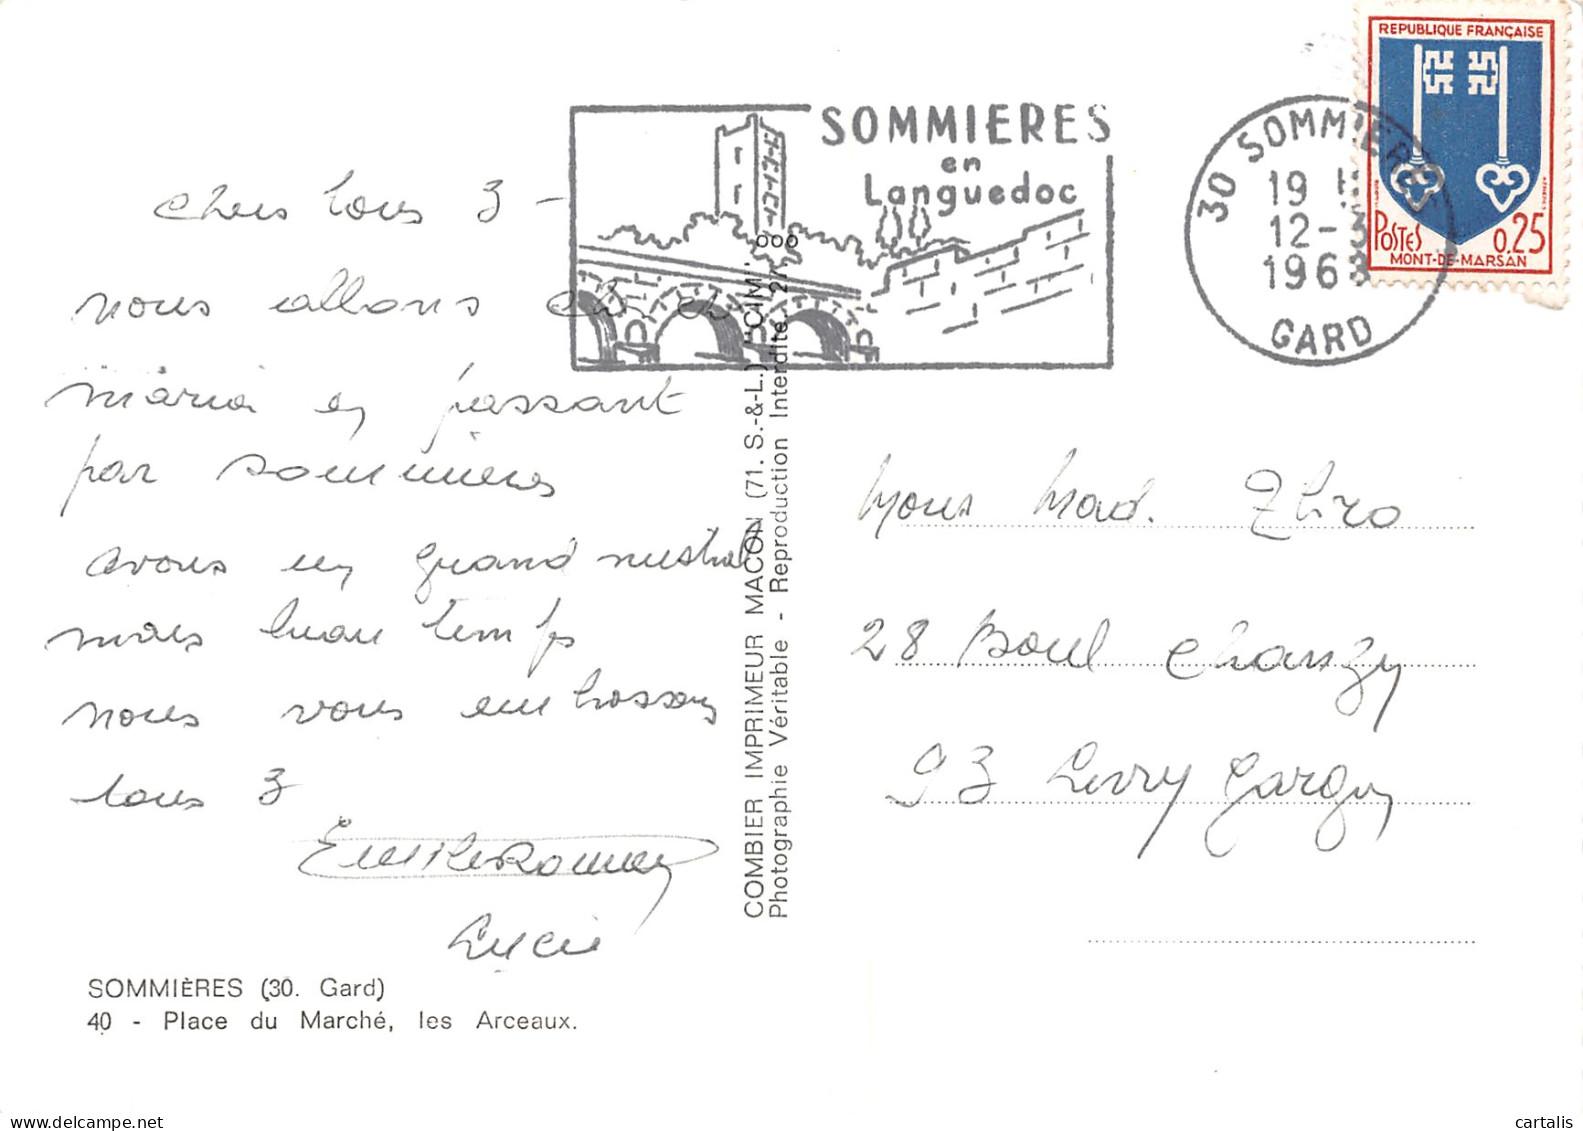 SOMMIERES
en
Languedoc
30 SOMMIERES
19 H
12-3
1968
GARD
REPUBLIQUE FRANÇAISE
POSTES 0,25
MONT-DE-MARSAN
chers tous 3 -
nous allons
maria en passant
par sommieres
avons un grand mistral
mais beau temps
nous vous embrassons
tous 3
Lucie
SOMMIÈRES (30. Gard)
40 - Place du Marché, les Arceaux.
COMBIER IMPRIMEUR MACON (71. S.-&-L.) "CIM"
Photographie Véritable - Reproduction Interdite
Mons Mad.
28 Boul Chanzy
93 Livry Gargan
cartalis
www.delcampe.net